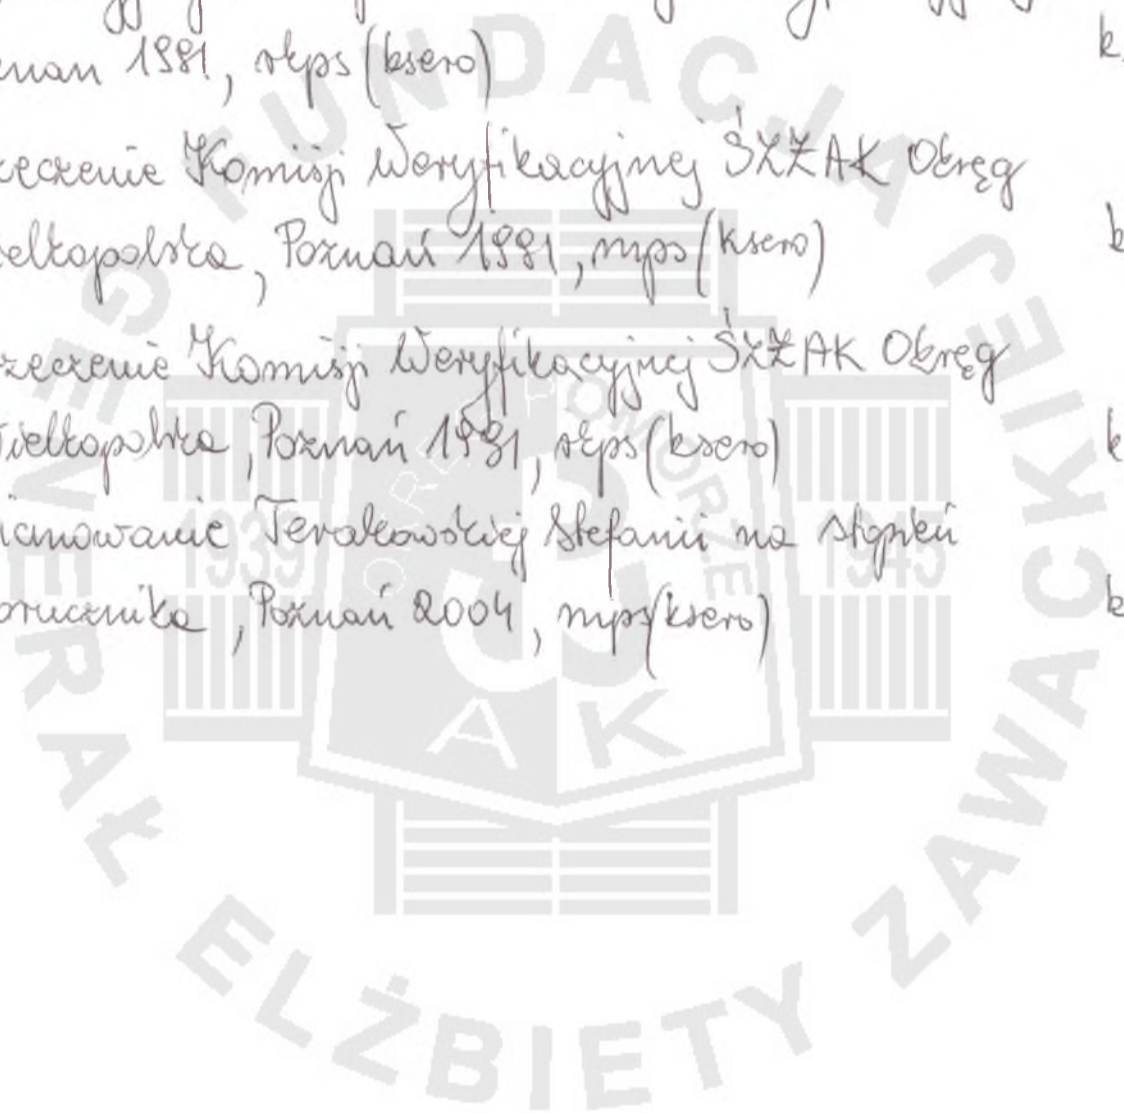 znań 1991, rkps (ksero)
zeczenie Komisji Weryfikacyjnej ŚZŻAK Okręg
ielkopolska, Poznań 1991, mps (ksero)
rzeczenie Komisji Weryfikacyjnej ŚZŻAK Okręg
Wielkopolska, Poznań 1991, rkps (ksero)
ianowanie Terakowskiej Stefanii na stopień
porucznika, Poznań 2004, mps (ksero)
k.
k
k
k
FUNDACJA
GENERAŁ ELŻBIETY ZAWACKIEJ
POMORZE
1939
1945
AK